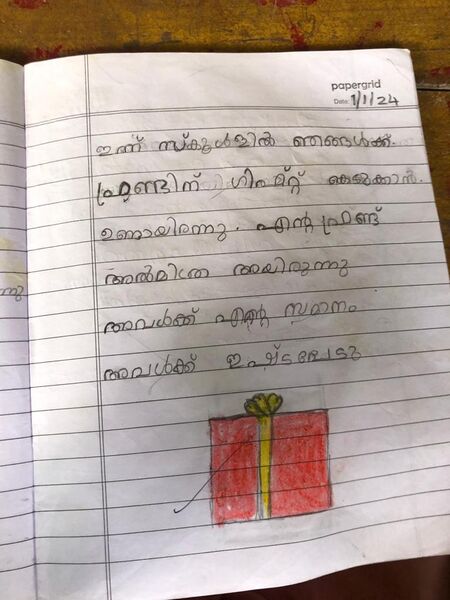 papergrid
Date: 1/1/24
ഇന്ന് സ്കൂളിൽ ഞങ്ങൾക്ക്.
ഫ്രണ്ടിന് ഗിഫ്റ്റ് കൊടുക്കാൻ.
ഉണ്ടായിരന്നു. എന്റ ഫ്രണ്ട്
അൽമിത്രേ അയിരുന്നു
അവൾക്ക് എന്റെ സമാനം
അവൾക്ക് ഇഷ്ടപ്പേടു
ന്നു